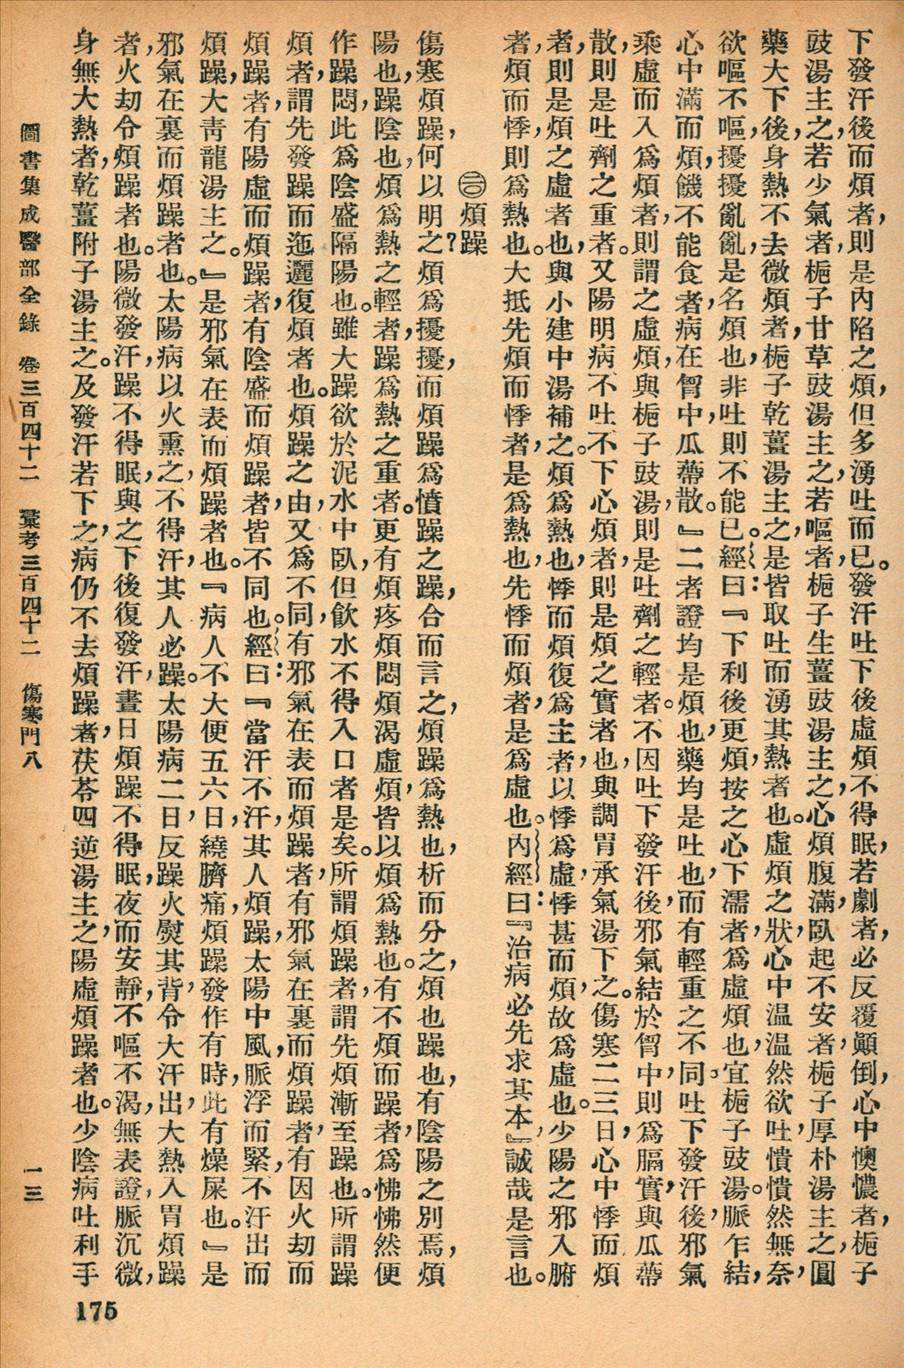 下發汗後而煩者，則是內陷之煩，但多湧吐而已。發汗吐下後虛煩不得眠，若劇者，必反覆顚倒，心中懊憹者，梔子
豉湯主之，若少氣者，梔子甘草豉湯主之，若嘔者，梔子生薑豉湯主之，心煩腹滿，臥起不安者，梔子厚朴湯主之，圓
藥大下後，身熱不去微煩者，梔子乾薑湯主之，是皆取吐而湧其熱者也。虛煩之狀，心中温温然欲吐，憒憒然無奈，
欲嘔不嘔，擾擾亂亂，是名煩也，非吐則不能已。經曰：『下利後更煩，按之心下濡者，爲虛煩也，宜梔子豉湯。脈乍結，
心中滿而煩，饑不能食者，病在胷中，瓜蒂散。』二者證均是煩也，藥均是吐也，而有輕重之不同。吐下發汗後，邪氣
乘虛而入爲煩者，則謂之虛煩，與梔子豉湯，則是吐劑之輕者。不因吐下發汗後，邪氣結於胷中，則爲膈實，與瓜蒂
散，則是吐劑之重者。又陽明病不吐不下心煩者，則是煩之實者也，與調胃承氣湯下之。傷寒二三日，心中悸而煩
者，則是煩之虛者也，與小建中湯補之。煩爲熱也，悸而煩復爲主者，以悸爲虛，悸甚而煩，故爲虛也。少陽之邪入腑
者，煩而悸，則爲熱也。大抵先煩而悸者，是爲熱也，先悸而煩者，是爲虛也。內經曰：『治病必先求其本』，誠哉是言也。
㊂煩躁
傷寒煩躁，何以明之？煩爲擾擾，而煩躁爲憤躁之躁，合而言之，煩躁爲熱也，析而分之，煩也躁也，有陰陽之別焉，煩
陽也，躁陰也，煩爲熱之輕者，躁爲熱之重者。更有煩疼煩悶煩渴虛煩，皆以煩爲熱也。有不煩而躁者，爲怫怫然便
作躁悶，此爲陰盛隔陽也。雖大躁欲於泥水中臥，但飮水不得入口者是矣。所謂煩躁者，謂先煩漸至躁也。所謂躁
煩者，謂先發躁而迤邐復煩者也。煩躁之由，又爲不同，有邪氣在表而煩躁者，有邪氣在裏而煩躁者，有因火劫而
煩躁者，有陽虛而煩躁者，有陰盛而煩躁者，皆不同也。經曰：『當汗不汗，其人煩躁，太陽中風，脈浮而緊，不汗出而
煩躁，大靑龍湯主之。』是邪氣在表而煩躁者也。『病人不大便五六日，繞臍痛，煩躁，發作有時，此有燥屎也。』是
邪氣在裏而煩躁者也。太陽病以火熏之，不得汗，其人必躁。太陽病二日，反躁，火熨其背，令大汗出，大熱入胃煩躁
者，火劫令煩躁者也。陽微發汗，躁不得眠，與之下後復發汗，晝日煩躁不得眠，夜而安靜，不嘔不渴，無表證，脈沉微，
身無大熱者，乾薑附子湯主之。及發汗若下之，病仍不去煩躁者，茯苓四逆湯主之，陽虛煩躁者也。少陰病吐利手
圖書集成醫部全錄　卷三百四十二　彙考三百四十二　傷寒門八　一三
175